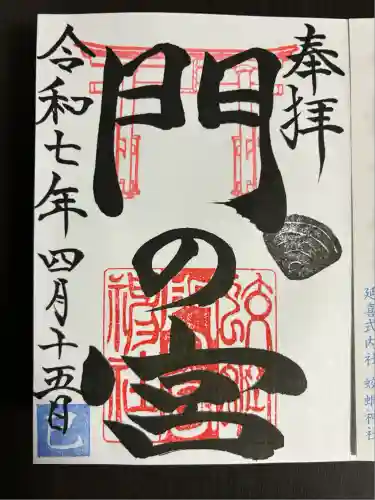 奉拝
門の宮
令和七年四月十五日
延喜式内社 蛟蝄神社